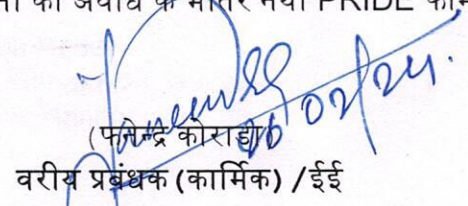 की अवधि के भीतर नया PRIDE
26/02/24.
(फनेन्द्र कोराडा)
वरीय प्रबंधक (कार्मिक) /ईई